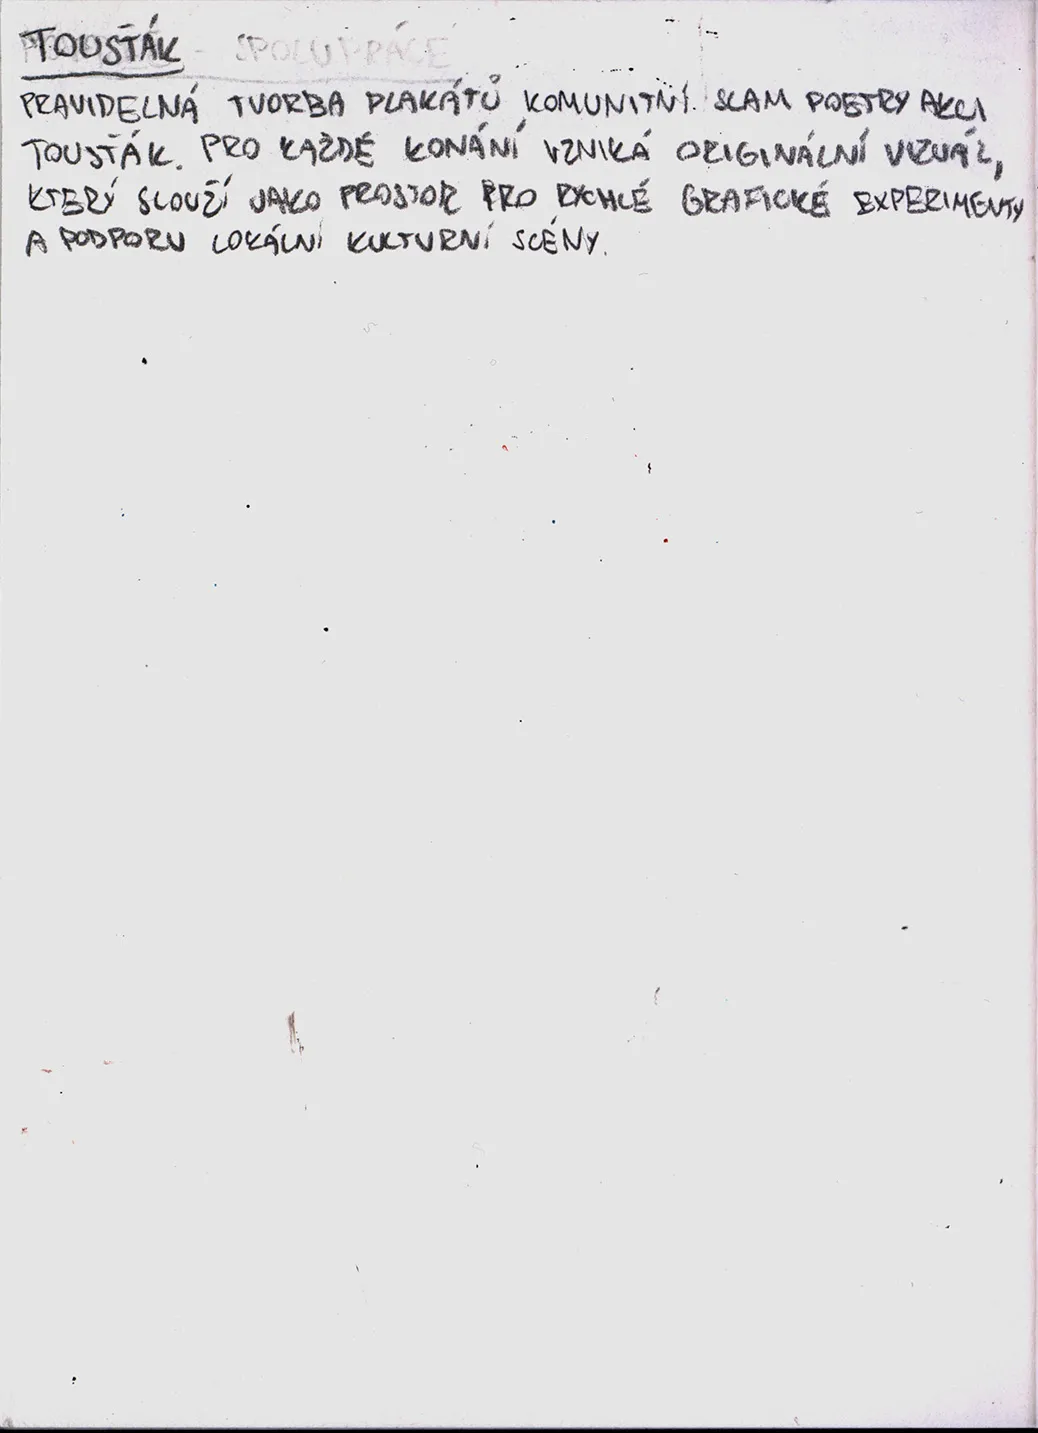 TOUSŤÁK
SPOLUPRÁCE
PRAVIDELNÁ TVORBA PLAKÁTŮ KOMUNITNÍ SLAM POETRY AKCI
TOUSŤÁK. PRO KAŽDÉ KONÁNÍ VZNIKÁ ORIGINÁLNÍ VIZUÁL,
KTERÝ SLOUŽÍ JAKO PROSTOR PRO RYCHLÉ GRAFICKÉ EXPERIMENTY
A PODPORU LOKÁLNÍ KULTURNÍ SCÉNY.